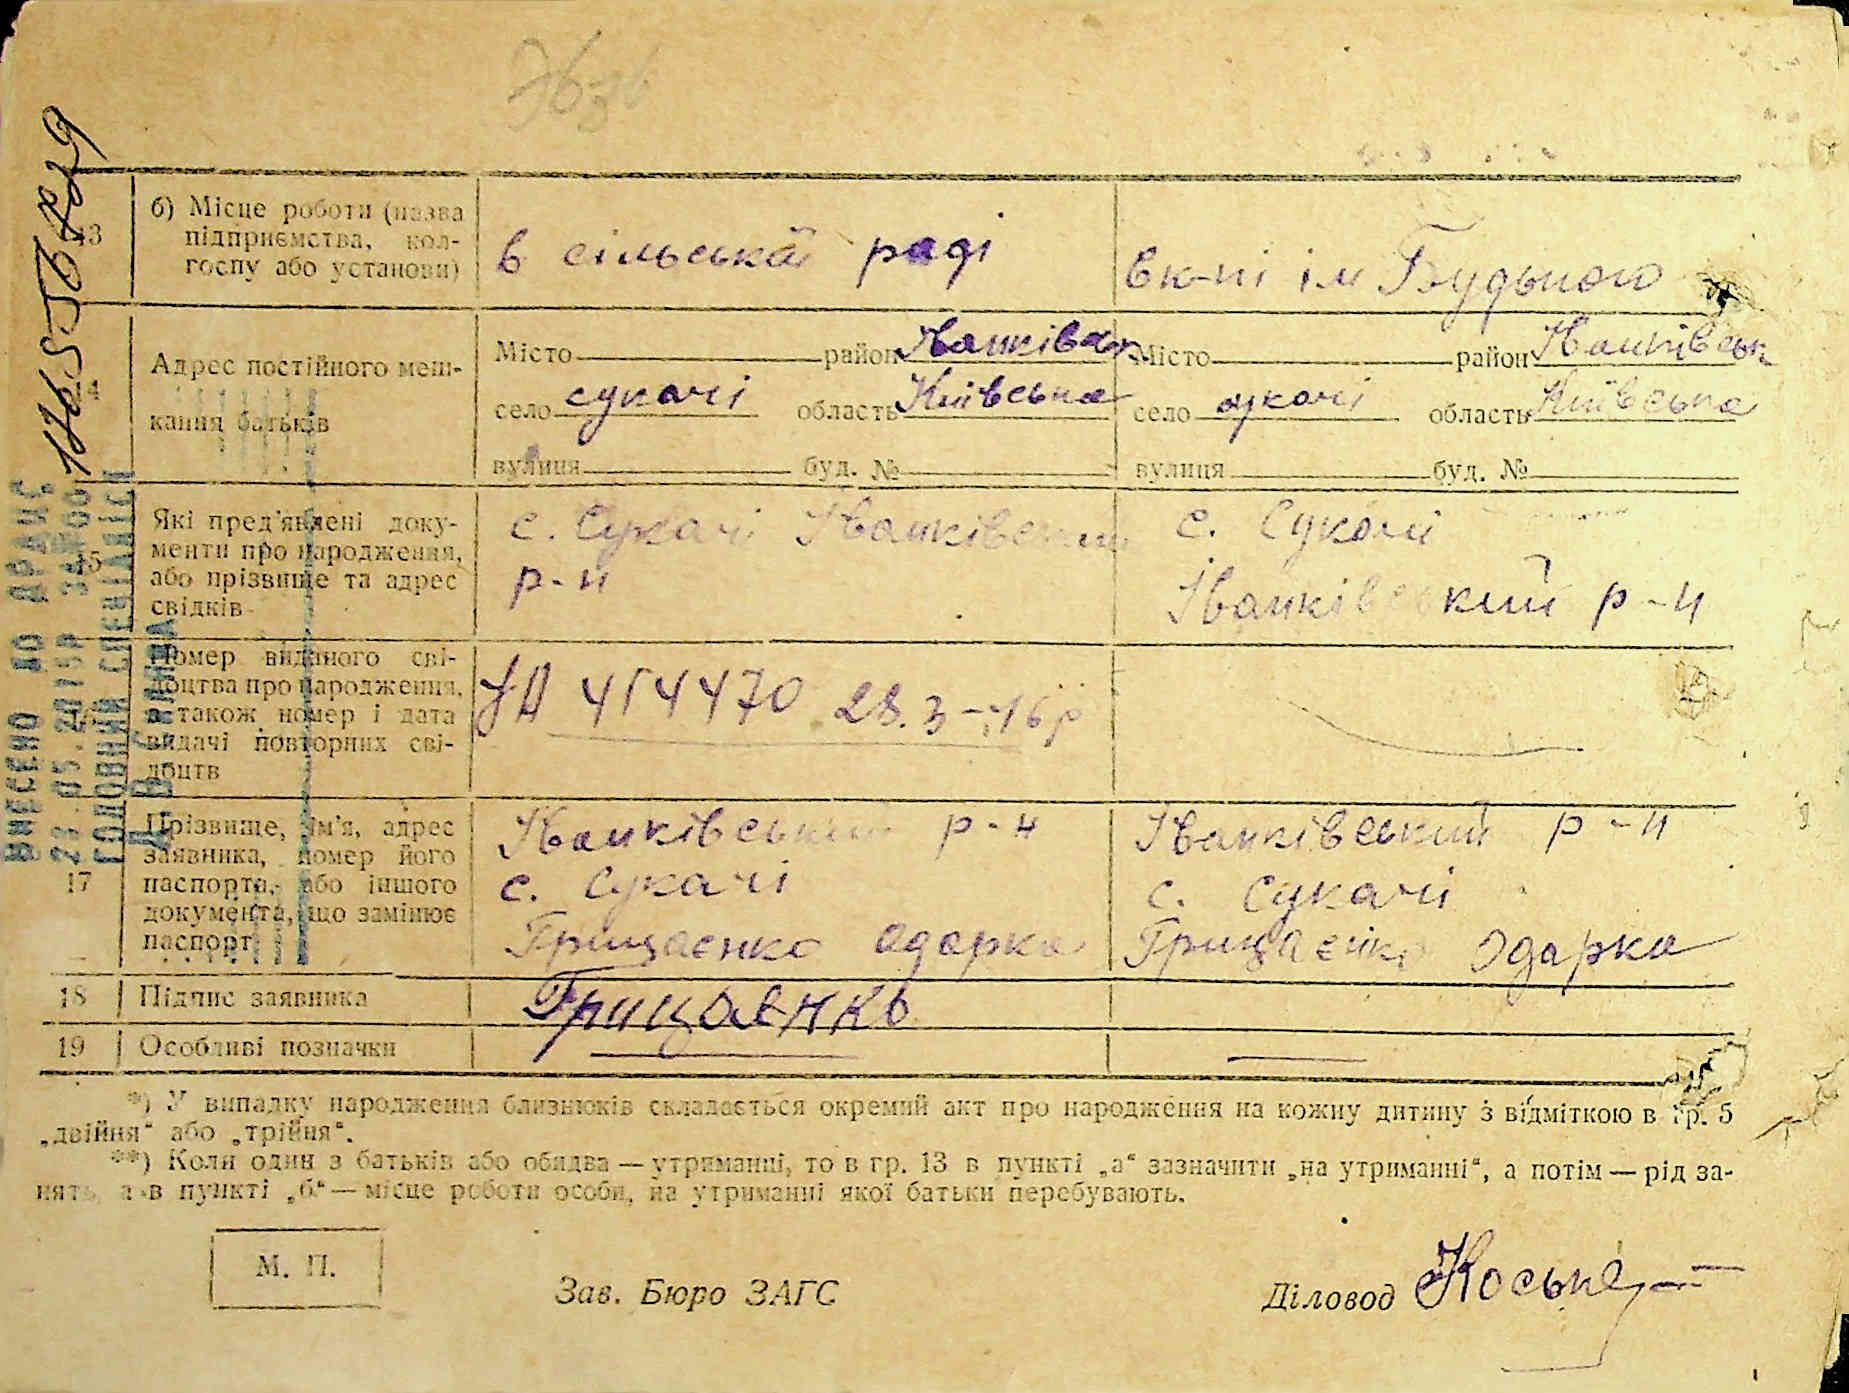 13 б) Місце роботи (назва
підприємства, кол-
госпу або установи)
в сільській раді
в к-пі ім Будьного
14 Адрес постійного меш-
кання батьків
Місто район Іванківськ
село сукачі область Київська
вулиця буд. №
Місто район Іванківськ
село сукачі область Київська
вулиця буд. №
15 Які пред'явлені доку-
менти про народження,
або прізвище та адрес
свідків
с. Сукачі Іванківський
р-н
с. Сукачі
Іванківський р-н
16 Номер виданого сві-
доцтва про народження,
а також номер і дата
видачі повторних сві-
доцтв
УА 414470 28.3-46 р
17 Прізвище, ім'я, адрес
заявника, номер його
паспорта, або іншого
документа, що замінює
паспорт
Іванківський р-н
с. Сукачі
Грицаєнко Одарка
Іванківський р-н
с. Сукачі
Грицаєнко Одарка
18 Підпис заявника
Грицаенко
19 Особливі позначки
*) У випадку народження близнюків складається окремий акт про народження на кожну дитину з відміткою в гр. 5
„двійня“ або „трійня“.
**) Коли один з батьків або обидва — утриманці, то в гр. 13 в пункті „а“ зазначити „на утриманні“, а потім — рід за-
нять, а в пункті „б“ — місце роботи особи, на утриманні якої батьки перебувають.
М. П.
Зав. Бюро ЗАГС
Діловод
ВНЕСЕНО ДО ДРАЦС
ГОЛОВНИЙ СПЕЦІАЛІСТ